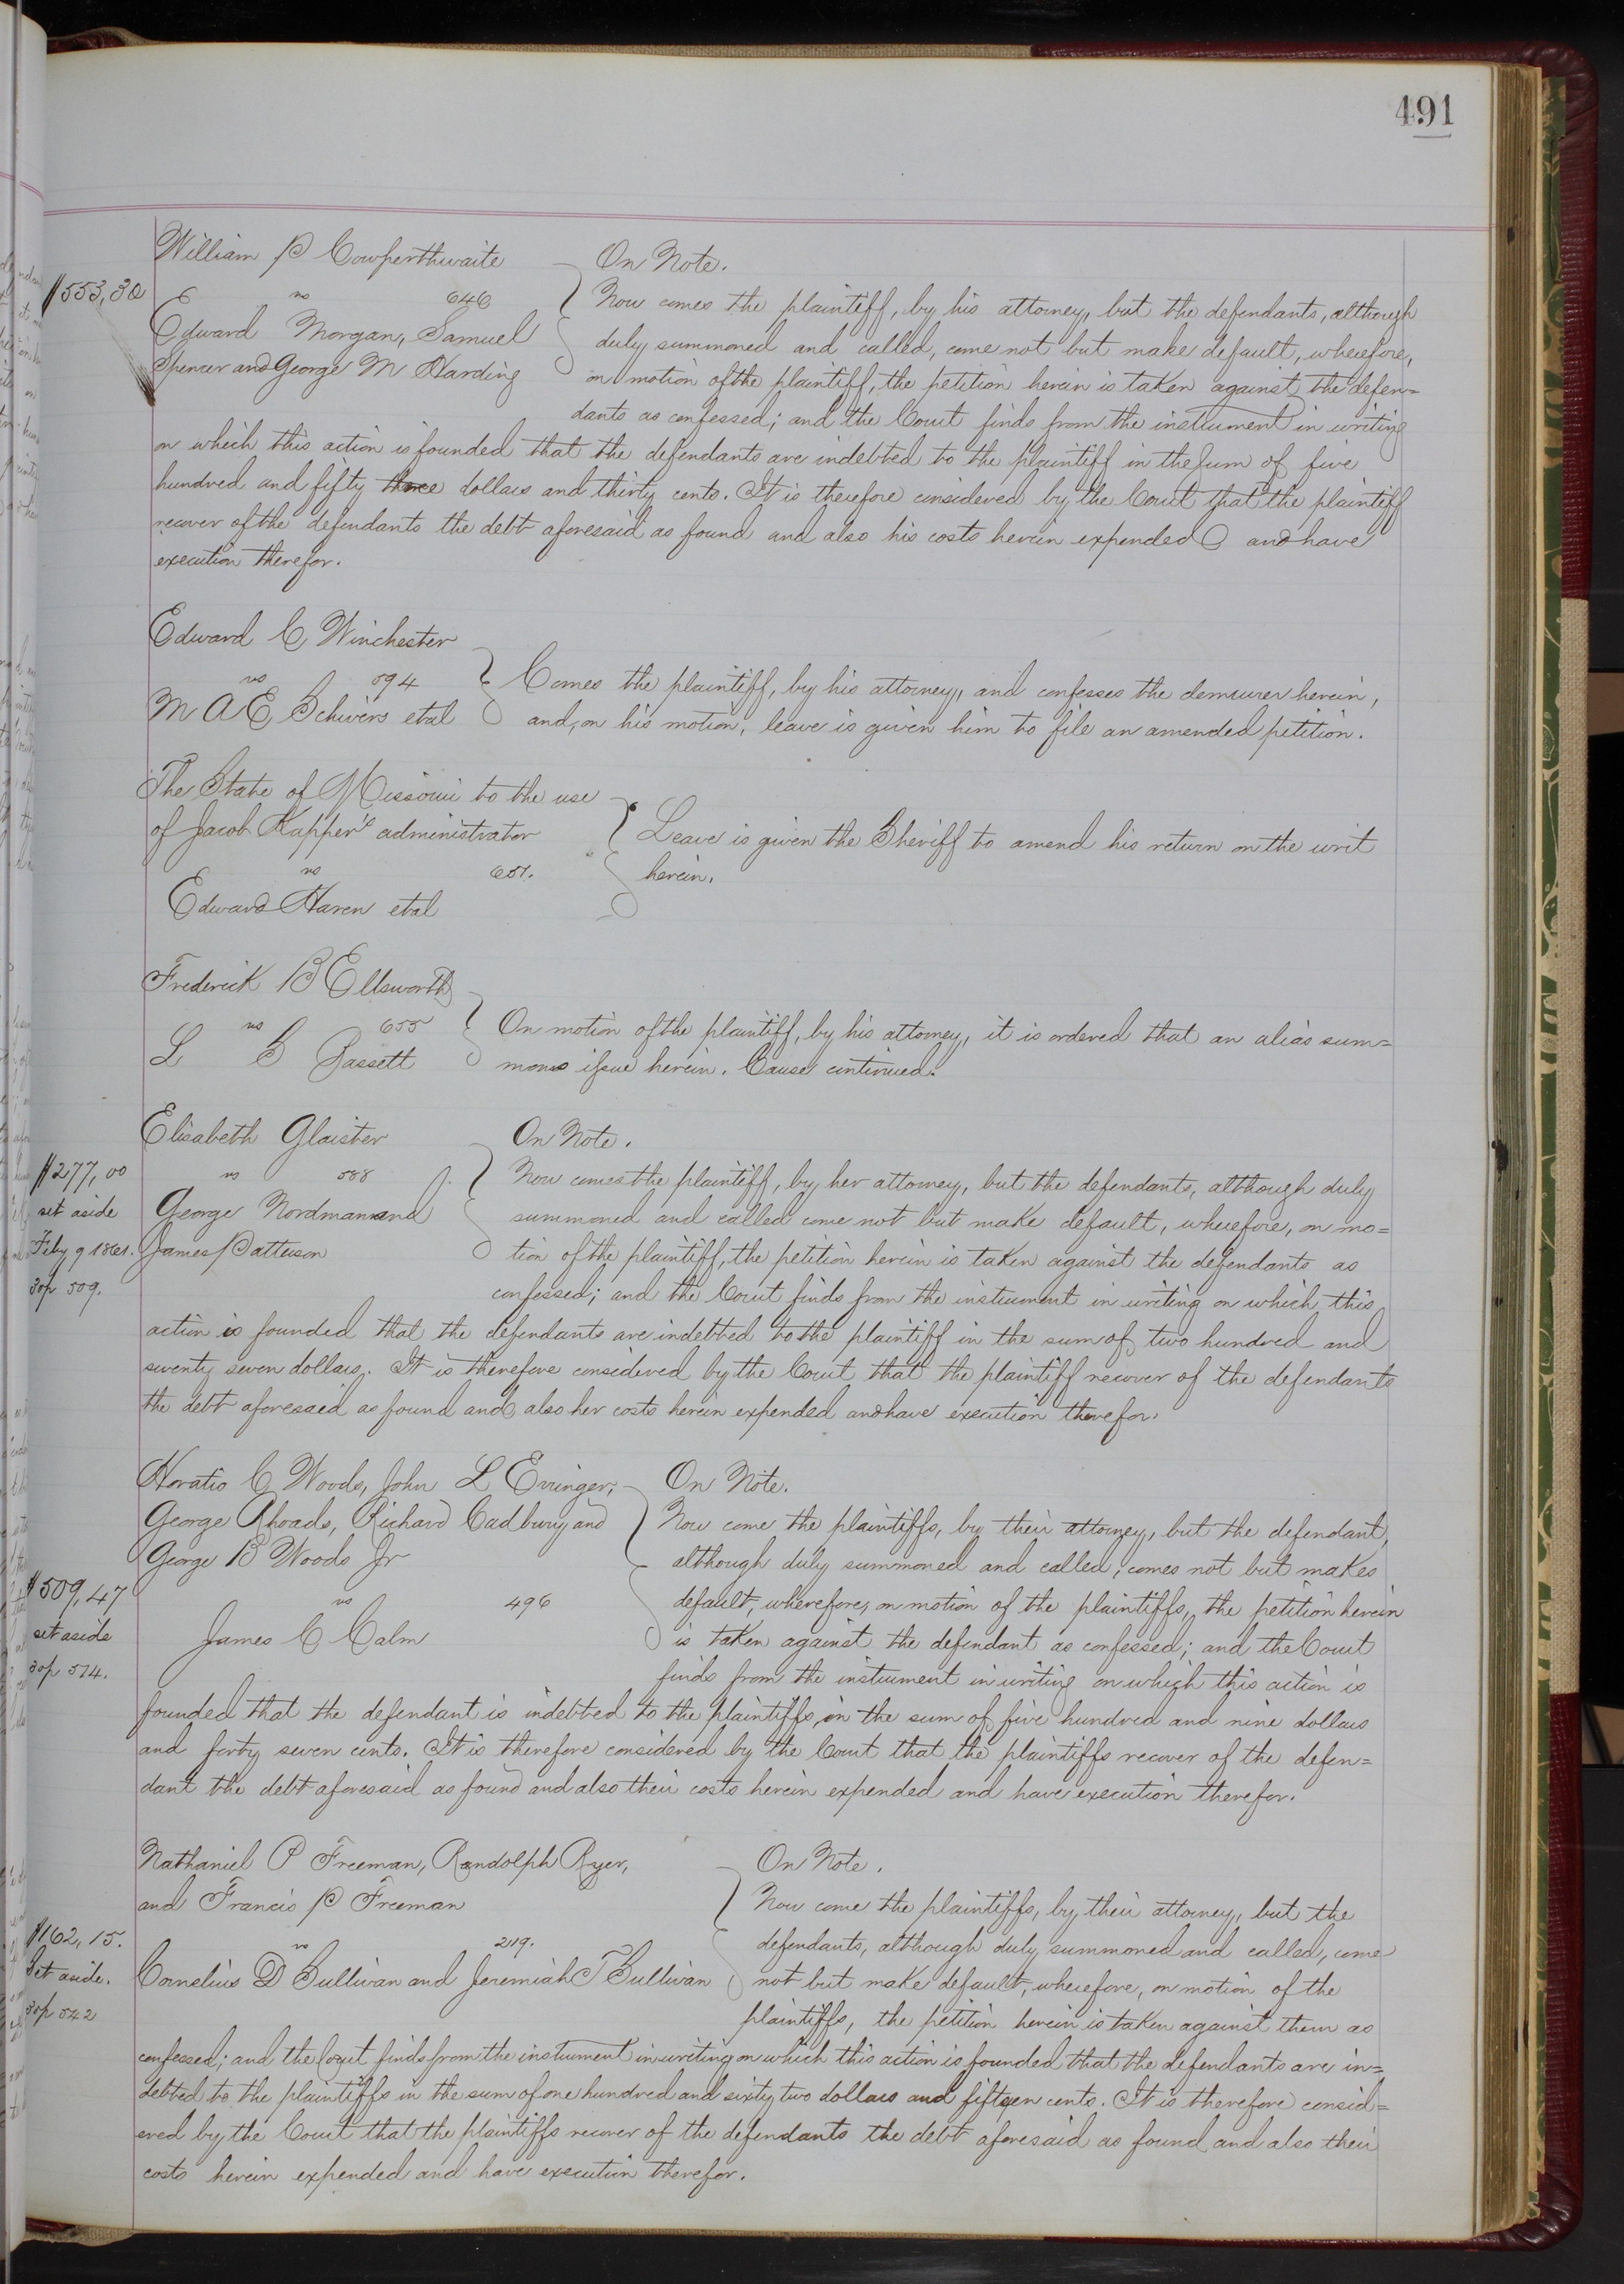 491
William P Cowperthwaite
On Note.
$553,30
vs 646
Now comes the plaintiff, by his attorney, but the defendants, although
Edward Morgan, Samuel
duly summoned and called, come not but make default, wherefore,
Spencer and George M Harding
on motion of the plaintiff, the petition herein is taken against the defen=
dants as confessed; and the Court finds from the instrument in writing
on which this action is founded that the defendants are indebted to the plaintiff in the sum of five
hundred and fifty three dollars and thirty cents. It is therefore considered by the Court that the plaintiff
recover of the defendants the debt aforesaid as found and also his costs herein expended and have
execution therefor.
Edward C Winchester
vs 594
Comes the plaintiff, by his attorney, and confesses the demurrer herein,
M A E Schivers etal
and, on his motion, leave is given him to file an amended petition.
The State of Missouri to the use
of Jacob Kapper's administrator
Leave is given the Sheriff to amend his return on the writ
vs 651.
herein.
Edward Haren etal
Frederick B Ellsworth
vs 655
On motion of the plaintiff, by his attorney, it is ordered that an alias sum=
L S Bassett
mons issue herein. Cause continued.
Elisabeth Glaister
On Note.
$277,00
vs 588
Now comes the plaintiff, by her attorney, but the defendants, although duly
set aside
George Nordman and
summoned and called come not but make default, wherefore, on mo=
Feby 9 1861.
James Patterson
tion of the plaintiff, the petition herein is taken against the defendants as
30p 509.
confessed; and the Court finds from the instrument in writing on which this
action is founded that the defendants are indebted to the plaintiff in the sum of two hundred and
seventy seven dollars. It is therefore considered by the Court that the plaintiff recover of the defendants
the debt aforesaid as found and also her costs herein expended and have execution therefor.
Horatio C Woods, John L Erringer,
On Note.
George Rhoads, Richard Cadbury and
Now come the plaintiffs, by their attorney, but the defendant,
George B Woods Jr
although duly summoned and called, comes not but makes
$509,47
vs 496
default, wherefore, on motion of the plaintiffs, the petition herein
set aside
James C Calm
is taken against the defendant as confessed; and the Court
30p 514.
finds from the instrument in writing on which this action is
founded that the defendant is indebted to the plaintiffs in the sum of five hundred and nine dollars
and forty seven cents. It is therefore considered by the Court that the plaintiffs recover of the defen=
dant the debt aforesaid as found and also their costs herein expended and have execution therefor.
Nathaniel P Freeman, Randolph Ryer,
On Note.
and Francis P Freeman
Now come the plaintiffs, by their attorney, but the
$162,15.
vs 219.
defendants, although duly summoned and called, come
Set aside.
Cornelius D Sullivan and Jeremiah T Sullivan
not but make default, wherefore, on motion of the
30p 542
plaintiffs, the petition herein is taken against them as
confessed; and the Court finds from the instrument in writing on which this action is founded that the defendants are in=
debted to the plaintiffs in the sum of one hundred and sixty two dollars and fifteen cents. It is therefore consid=
ered by the Court that the plaintiffs recover of the defendants the debt aforesaid as found and also their
costs herein expended and have execution therefor.